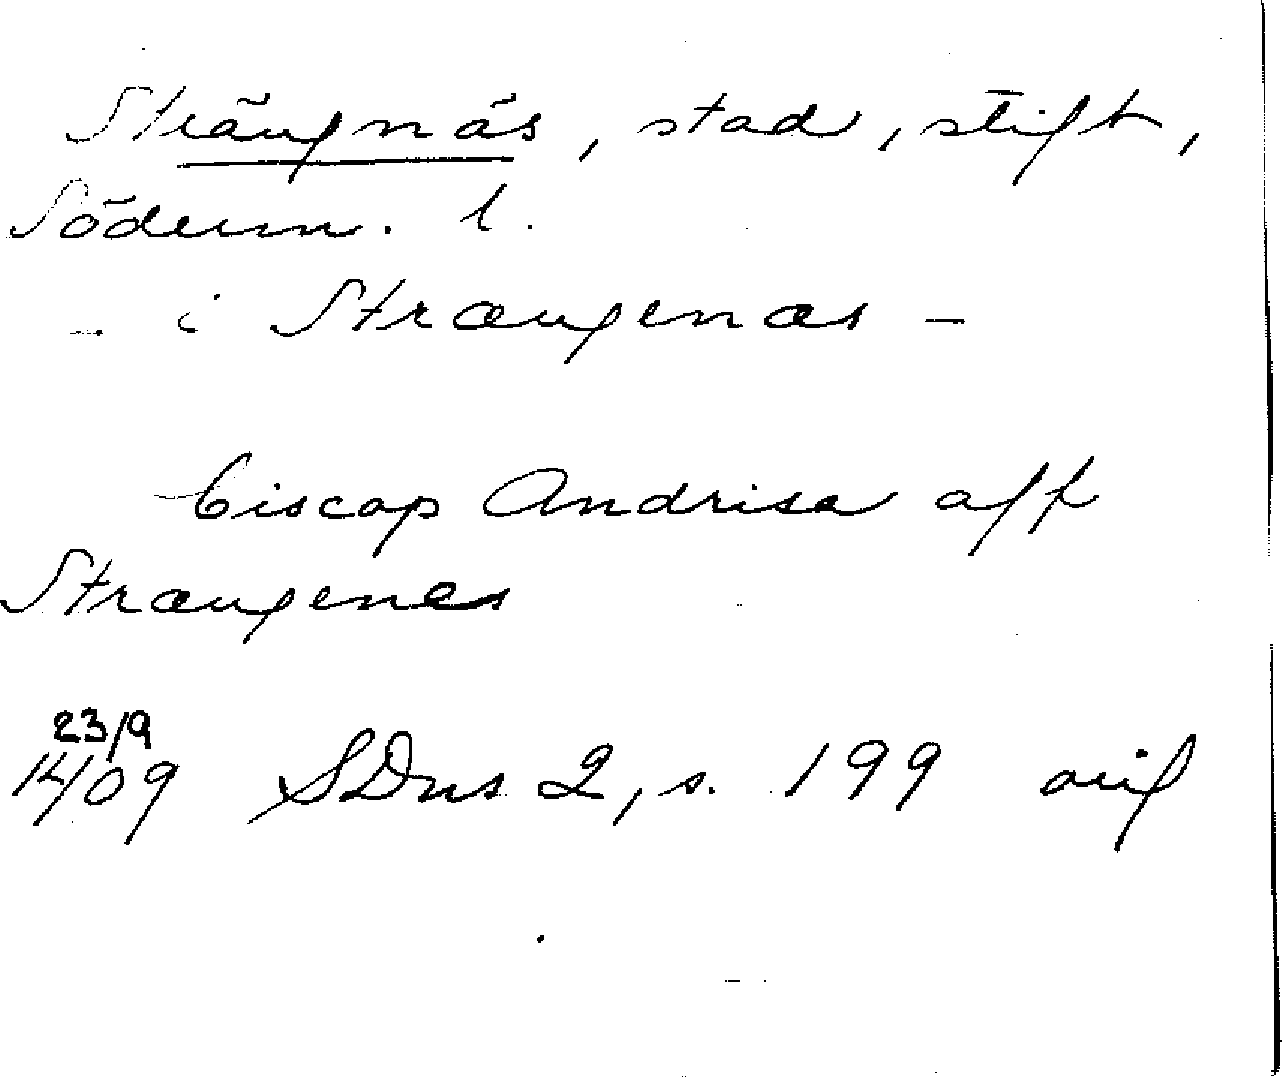 Strängnäs, stad, stift,
Söderm. l.
- i Strængenæs -
Biscop Andrisa aff
Strængenes
23/9
1409 SDns 2, s. 199 orig